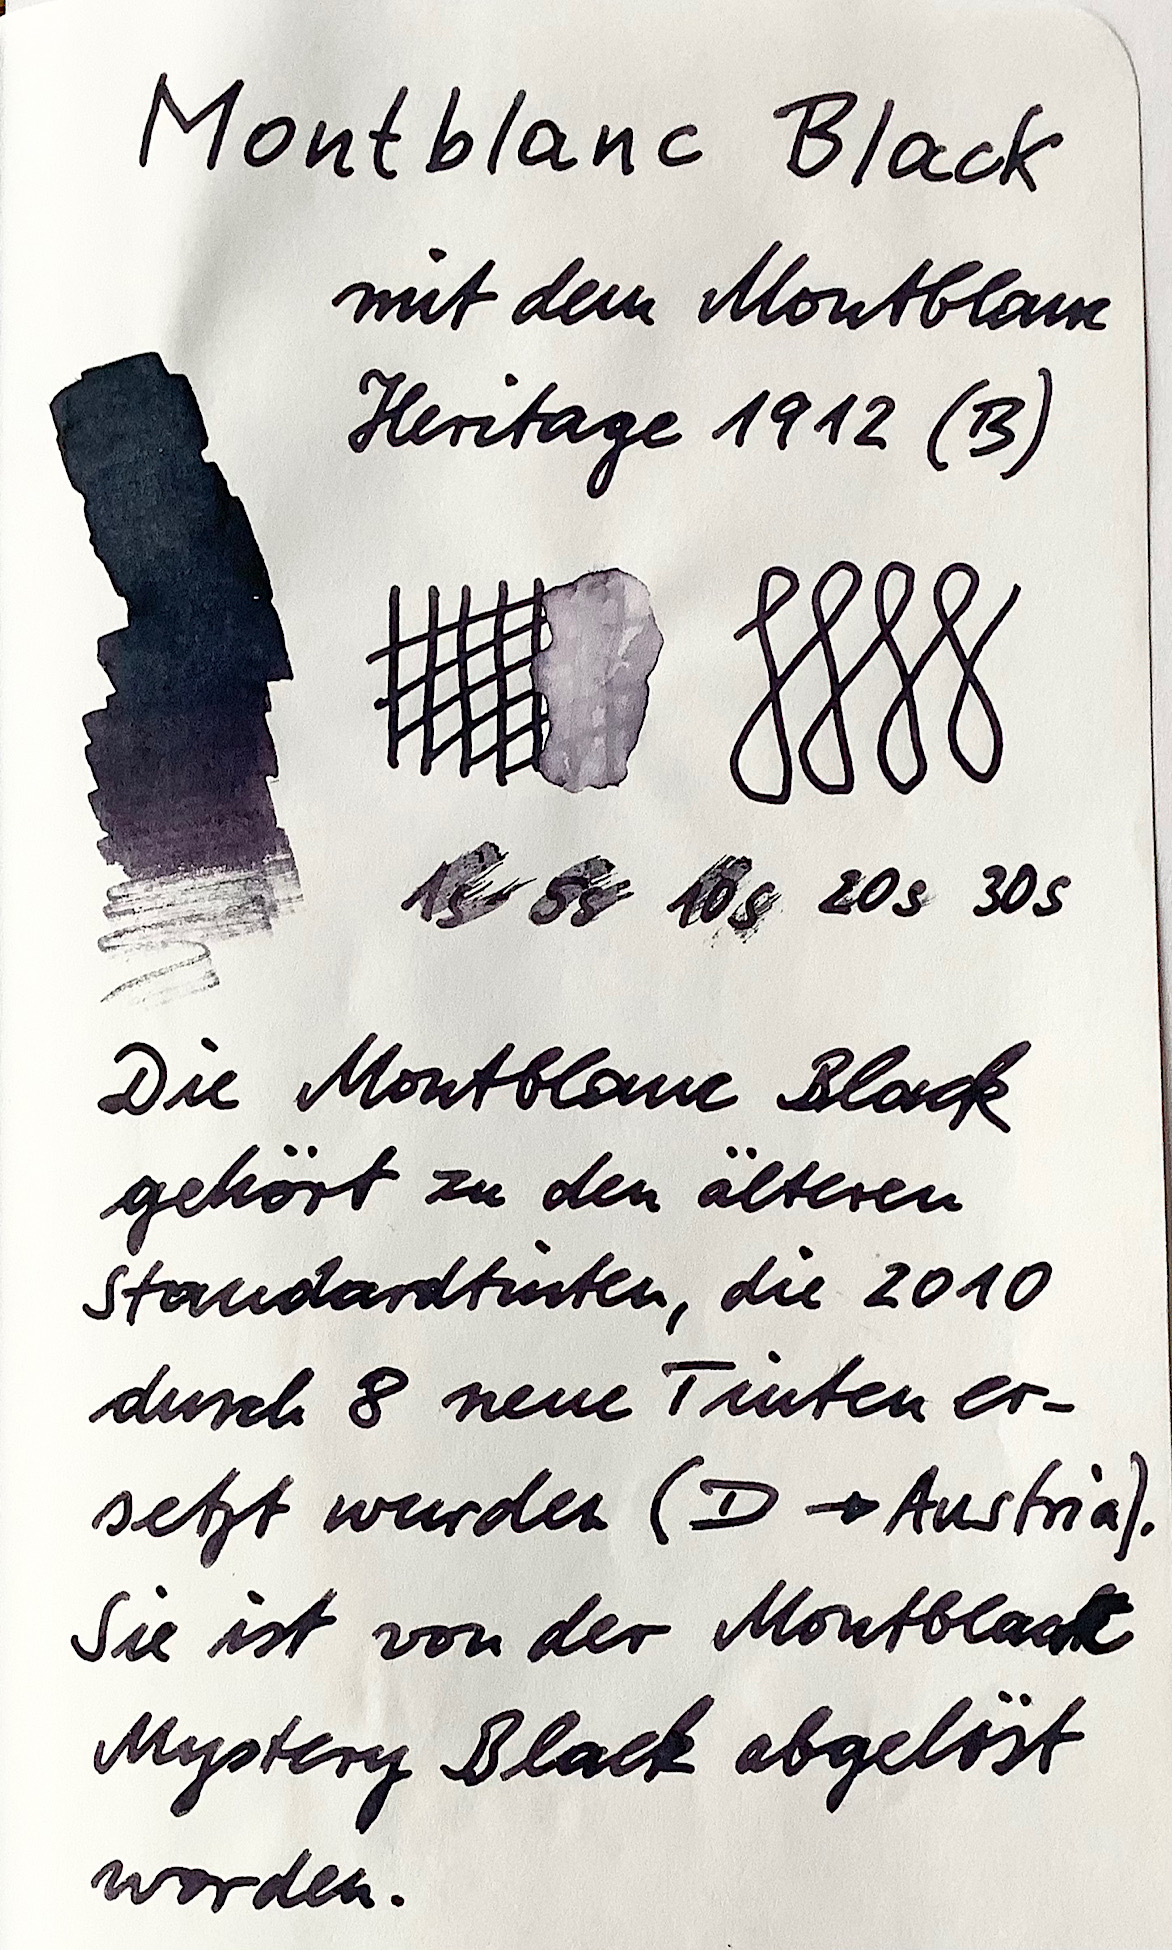 Montblanc Black
mit dem Montblanc
Heritage 1912 (B)
1s 5s 10s 20s 30s
Die Montblanc Black
gehört zu den älteren
Standardtinten, die 2010
durch 8 neue Tinten er-
setzt wurden (D → Austria).
Sie ist von der Montblanc
Mystery Black abgelöst
worden.